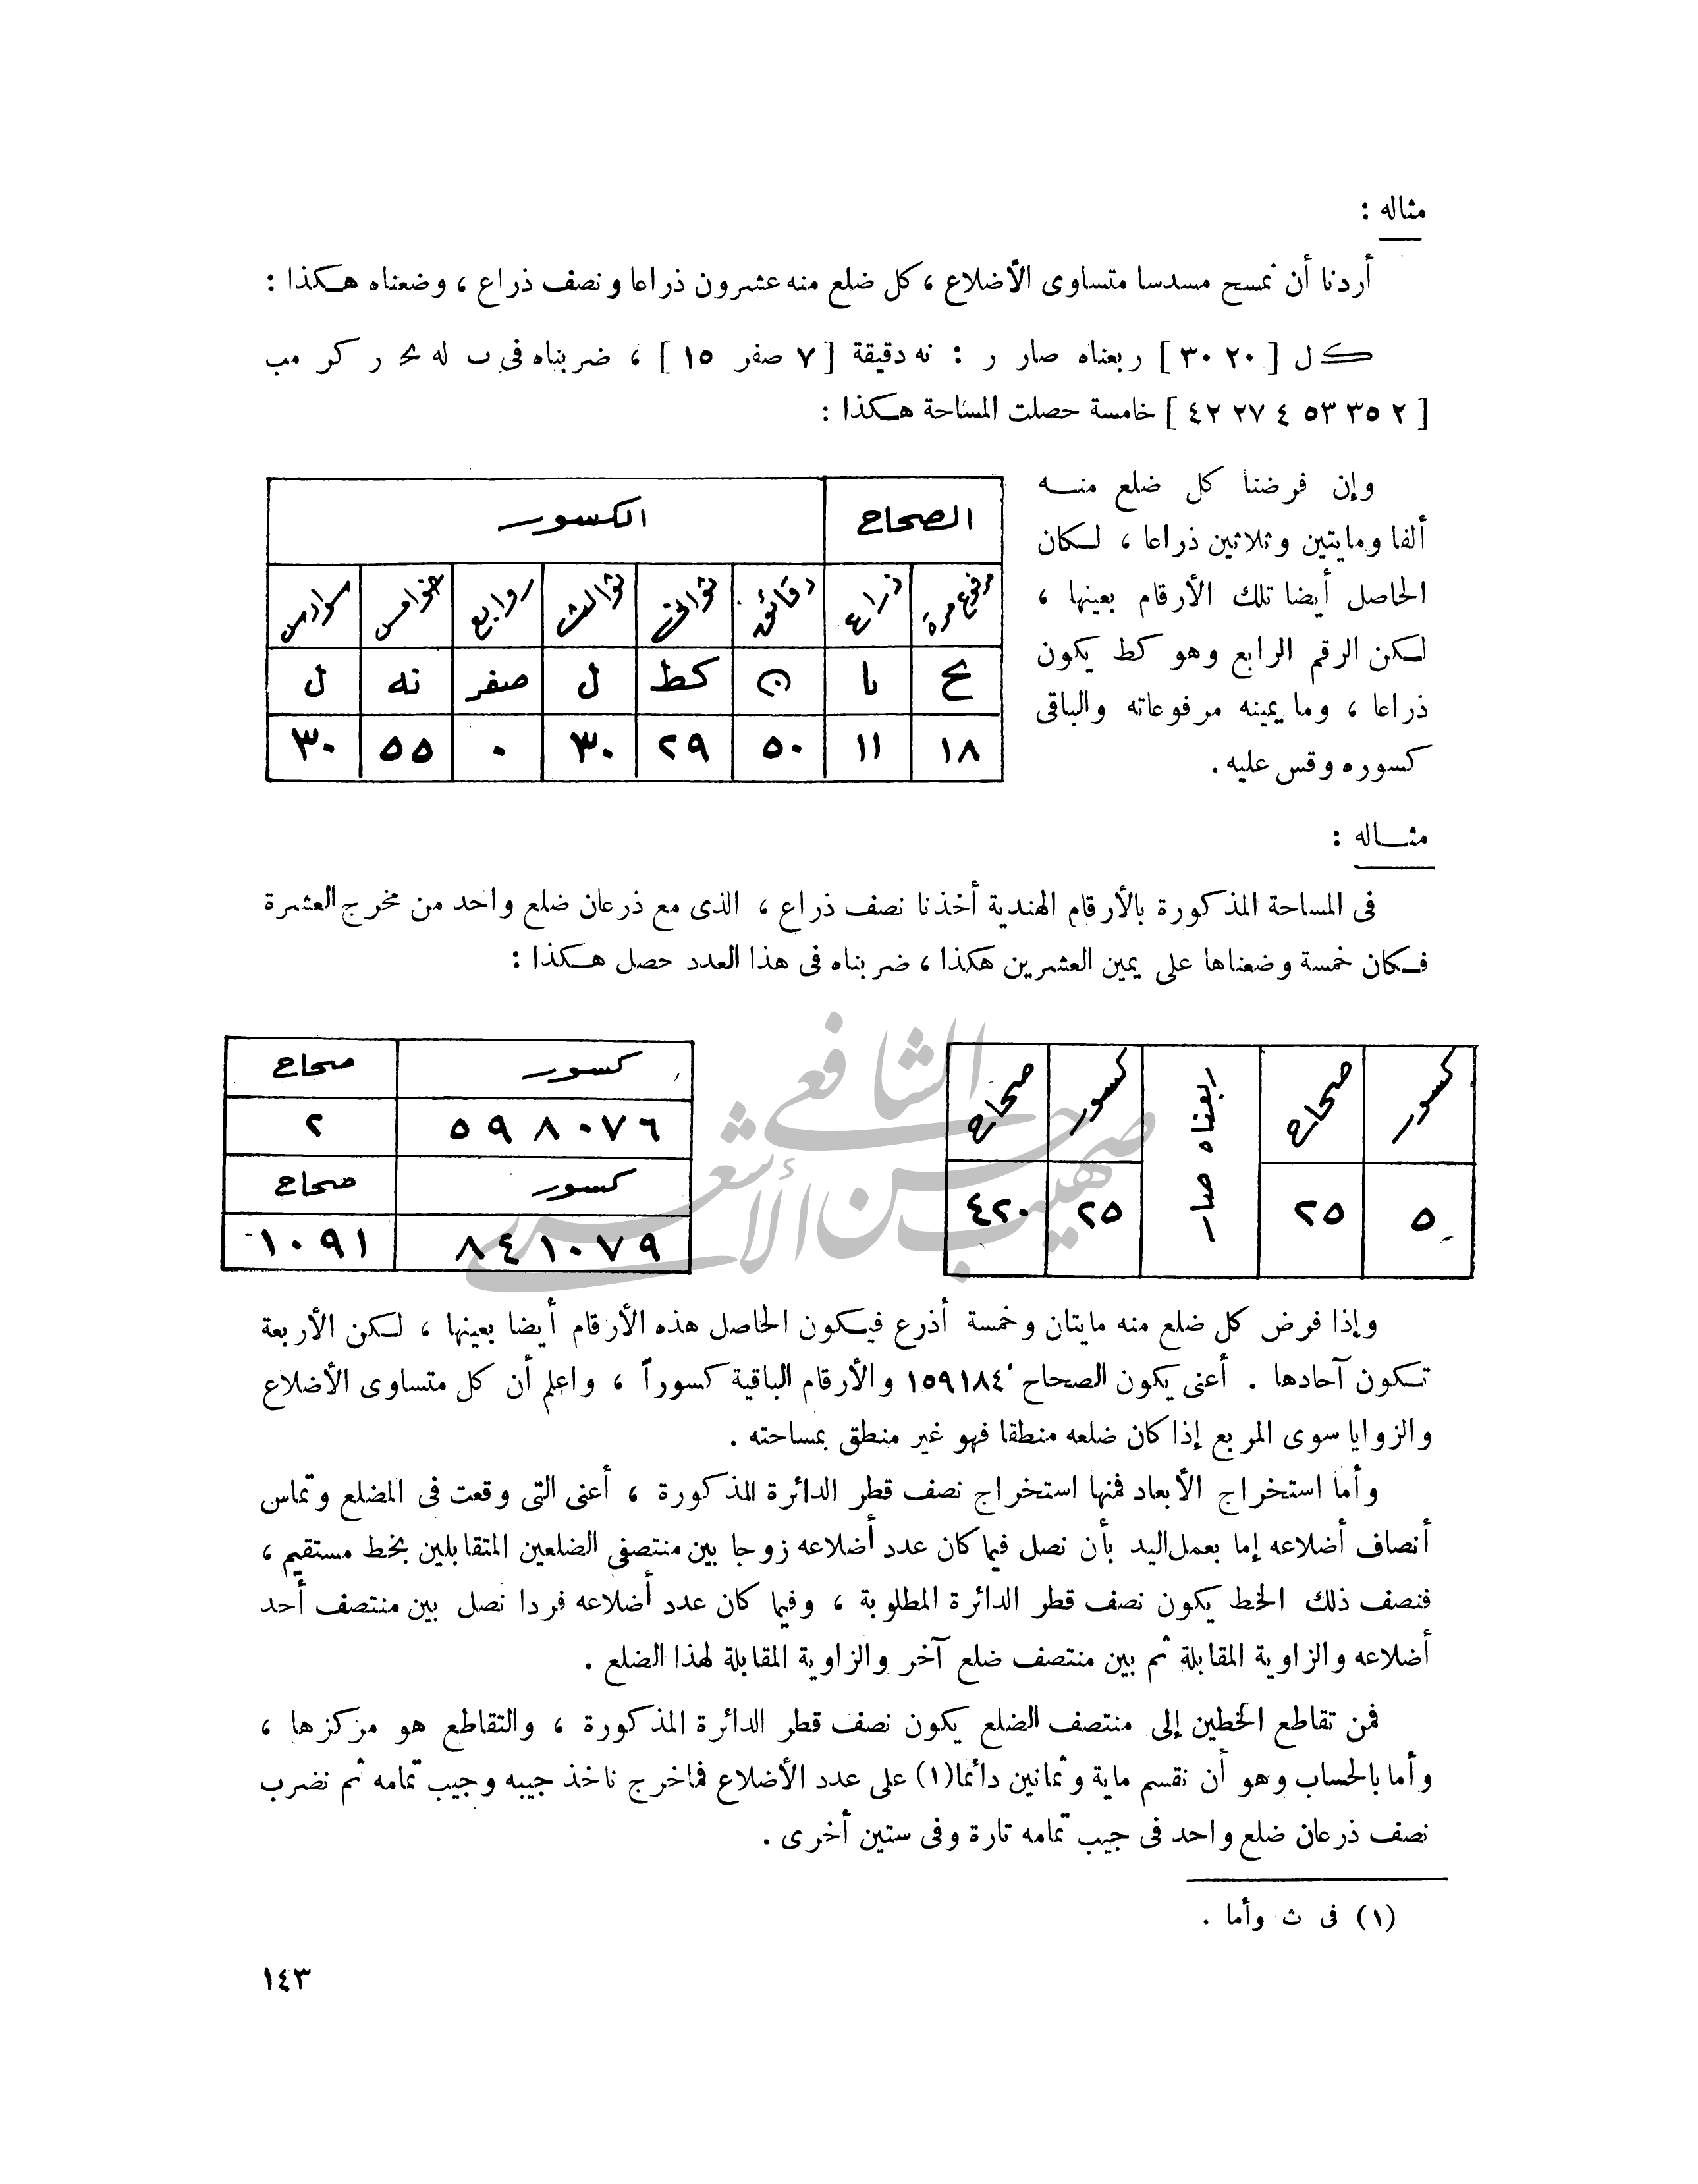 مثاله :
أردنا أن نمسح مسدسا متساوى الأضلاع ، كل ضلع منه عشرون ذراعا ونصف ذراع ، وضعناه هكذا :
ك ل [ ٢٠ ٣٠ ] ربعناه صار ر : نه دقيقة [ ٧ صفر ١٥ ] ، ضربناه فى ب له نح ر كر مب
[ ٢ ٣٥ ٥٣ ٤ ٢٧ ٤٢ ] خامسة حصلت المساحة هكذا :
وإن فرضنا كل ضلع منه
ألفا ومايتين وثلاثين ذراعا ، لكان
الحاصل أيضا تلك الأرقام بعينها ،
لكن الرقم الرابع وهو كط يكون
ذراعا ، وما يمينه مرفوعاته والباقى
كسوره وقس عليه .
الصحاح الكسور
مرفوع مرة ذراع دقائق ثوانى ثوالث روابع خوامس سوادس
يح يا ن كط ل صفر نه ل
١٨ ١١ ٥٠ ٢٩ ٣٠ ٠ ٥٥ ٣٠
مثاله :
فى المساحة المذكورة بالأرقام الهندية أخذنا نصف ذراع ، الذى مع ذرعان ضلع واحد من مخرج العشرة
فكان خمسة وضعناها على يمين العشرين هكذا ، ضربناه فى هذا العدد حصل هكذا :
كسور صحاح ربعناه صار كسور صحاح
٥ ٢٥ ٢٥ ٤٢٠
كسور صحاح
٥٩٨٠٧٦ ٢
كسور صحاح
٨٤١٠٧٩ ١٠٩١
صهيب حسن الشافعي الأشعري
وإذا فرض كل ضلع منه مايتان وخمسة أذرع فيكون الحاصل هذه الأرقام أيضا بعينها ، لكن الأربعة
تكون آحادها . أعنى يكون الصحاح ١٥٩١٨٤ والأرقام الباقية كسوراً ، واعلم أن كل متساوى الأضلاع
والزوايا سوى المربع إذا كان ضلعه منطقا فهو غير منطق بمساحته .
وأما استخراج الأبعاد فمنها استخراج نصف قطر الدائرة المذكورة ، أعنى التى وقعت فى المضلع وتماس
أنصاف أضلاعه إما بعمل اليد بأن نصل فيما كان عدد أضلاعه زوجا بين منتصفى الضلعين المتقابلين بخط مستقيم ،
فنصف ذلك الخط يكون نصف قطر الدائرة المطلوبة ، وفيما كان عدد أضلاعه فردا نصل بين منتصف أحد
أضلاعه والزاوية المقابلة ثم بين منتصف ضلع آخر والزاوية المقابلة لهذا الضلع .
فمن تقاطع الخطين إلى منتصف الضلع يكون نصف قطر الدائرة المذكورة ، والتقاطع هو مركزها ،
وأما بالحساب وهو أن نقسم ماية وثمانين دائما(١) على عدد الأضلاع فماخرج ناخذ جيبه وجيب تمامه ثم نضرب
نصف ذرعان ضلع واحد فى جيب تمامه تارة وفى ستين أخرى .
(١) فى ث وأما .
١٤٣